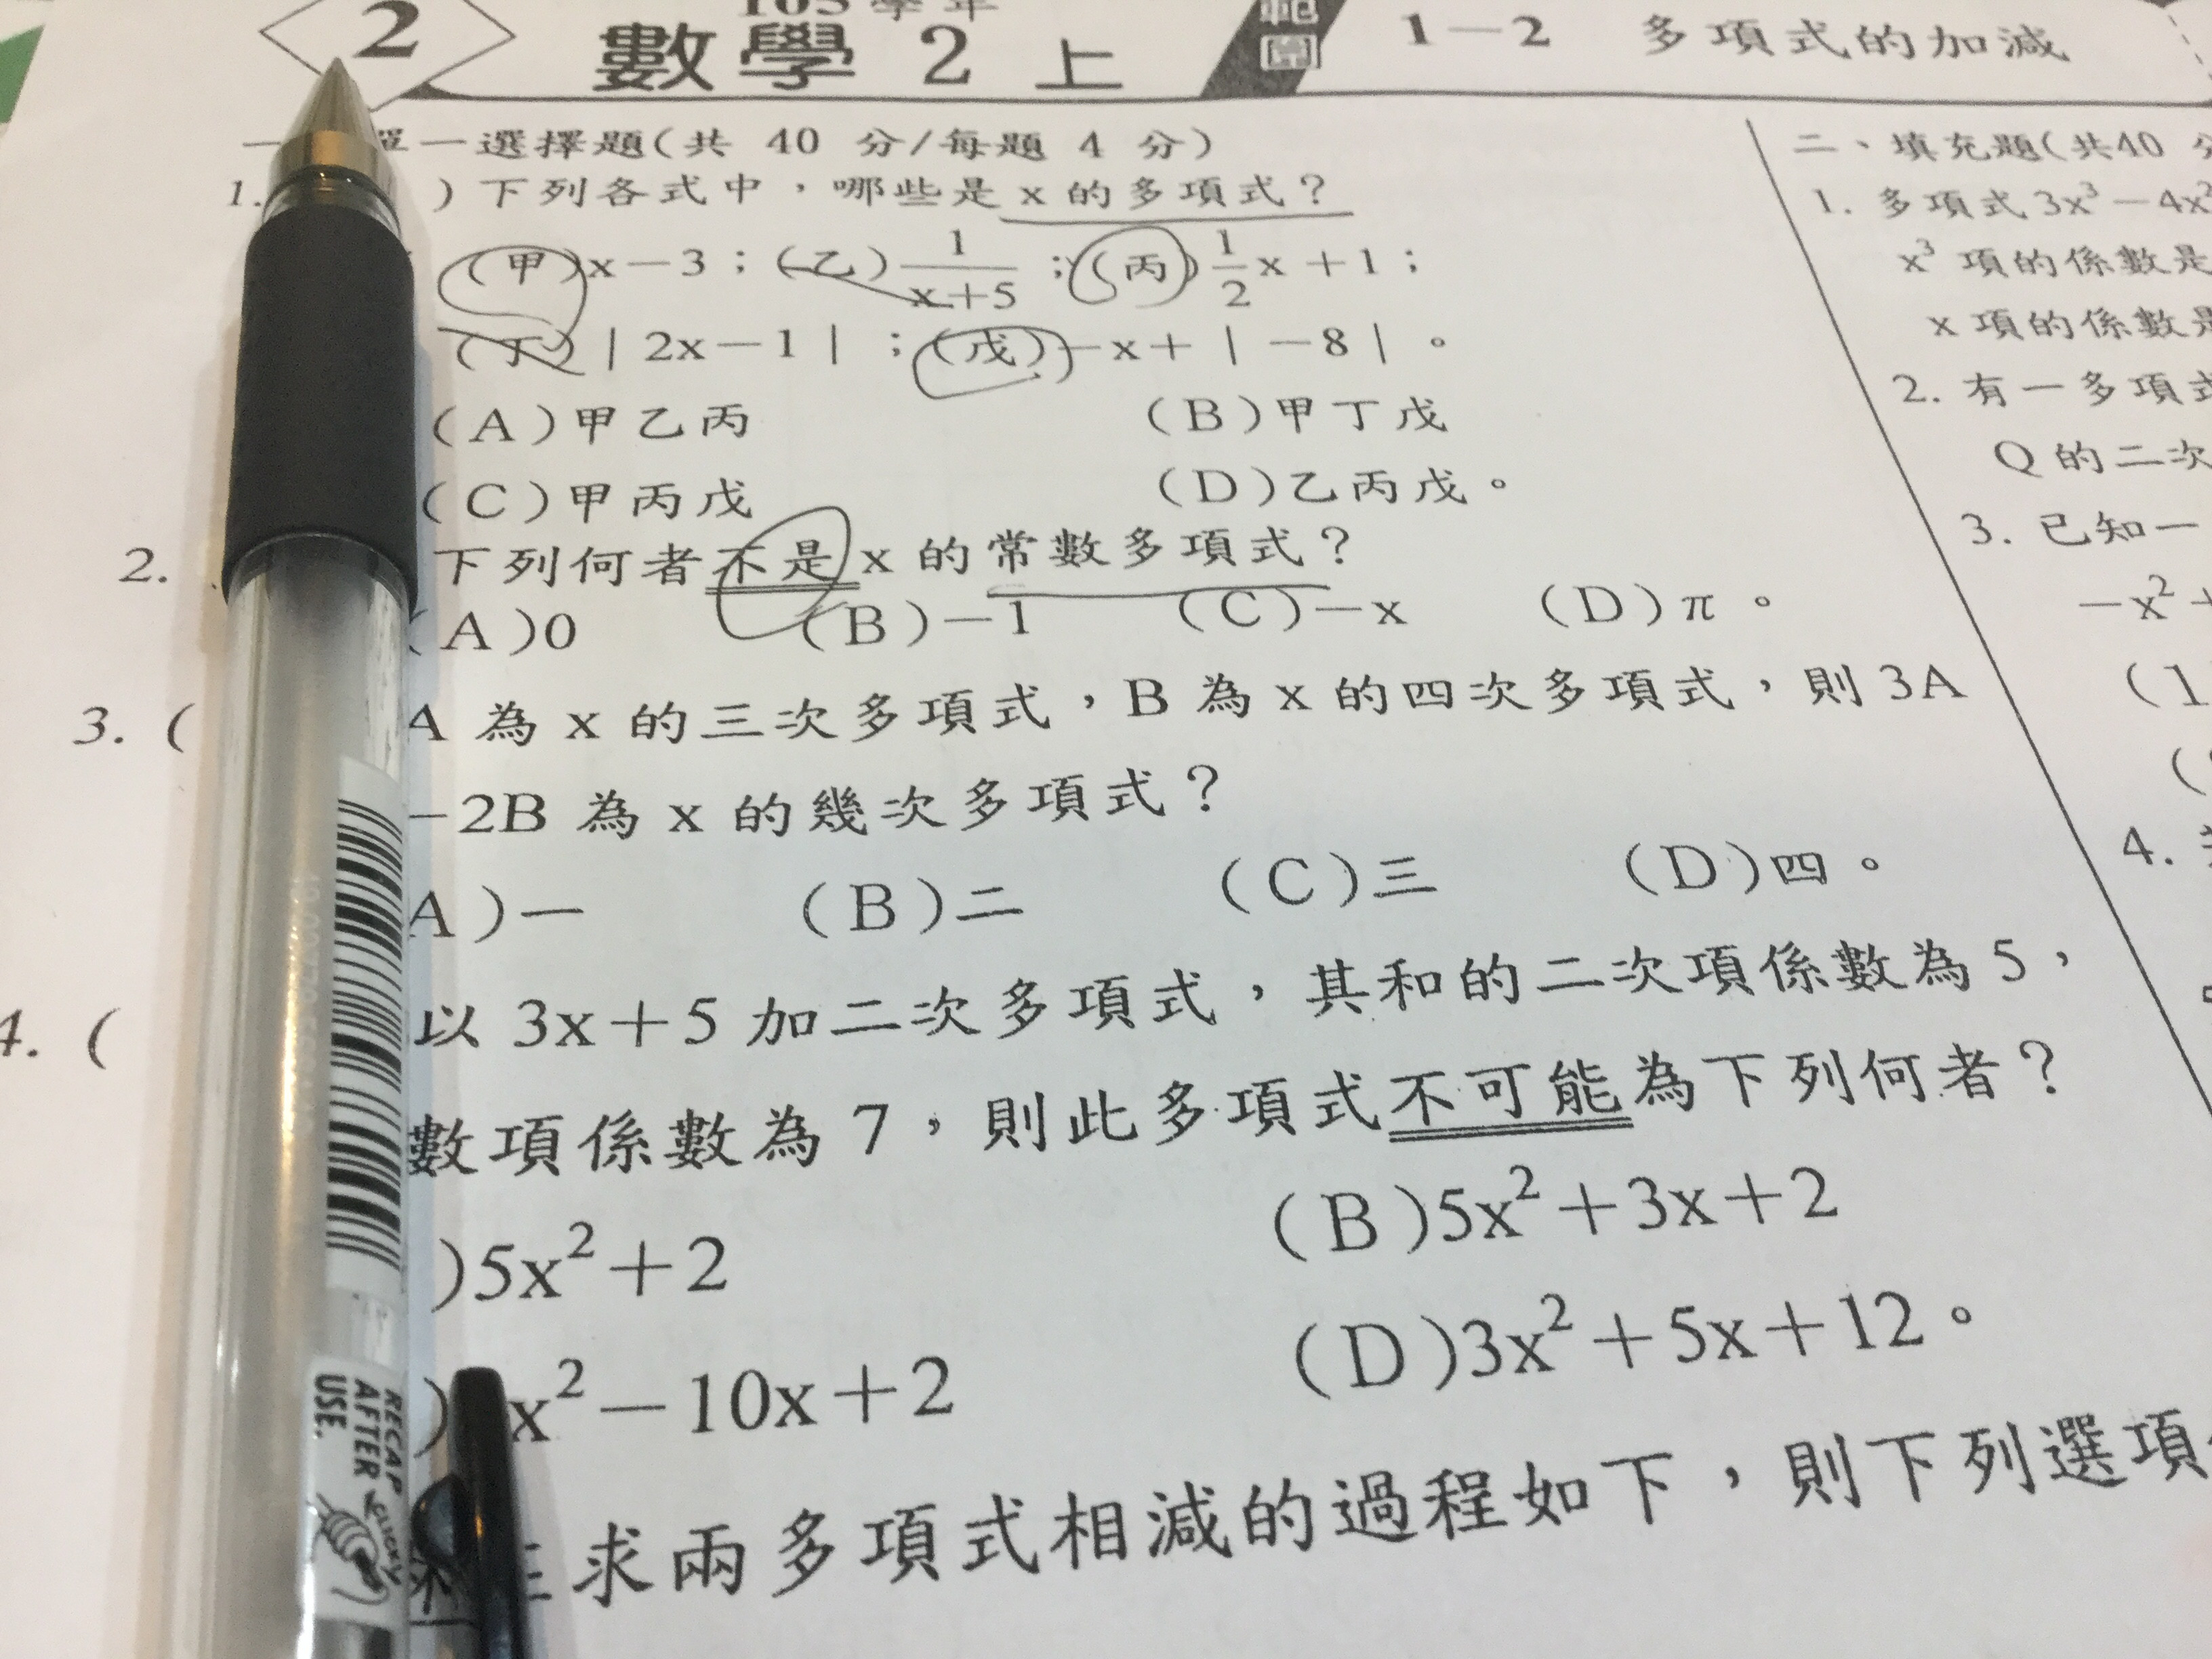 2
數學 2 上
1－2 多項式的加減
單一選擇題(共 40 分/每題 4 分)
1. )下列各式中，哪些是 x 的多項式？
(甲)x－3；(乙)1/(x+5)；(丙)1/2 x +1；
(丁)｜2x－1｜；(戊)－x+｜－8｜。
(A)甲乙丙 (B)甲丁戊
(C)甲丙戊 (D)乙丙戊。
2. 下列何者不是 x 的常數多項式？
(A)0 (B)－1 (C)－x (D)π。
3. ( A 為 x 的三次多項式，B 為 x 的四次多項式，則 3A
－2B 為 x 的幾次多項式？
A)一 (B)二 (C)三 (D)四。
4. ( 以 3x＋5 加二次多項式，其和的二次項係數為 5，
數項係數為 7，則此多項式不可能為下列何者？
)5x²＋2 (B)5x²＋3x＋2
)x²－10x＋2 (D)3x²＋5x＋12。
求兩多項式相減的過程如下，則下列選項
二、填充題(共40
1. 多項式 3x³－4x²
x³ 項的係數是
x 項的係數是
2. 有一多項式
Q 的二次
3. 已知一
－x²＋
(1
4.
RECAP
AFTER
USE.
CLICK!